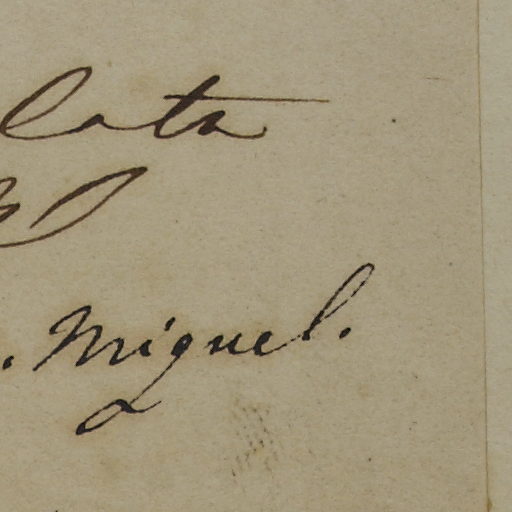 lata
. Miguel.